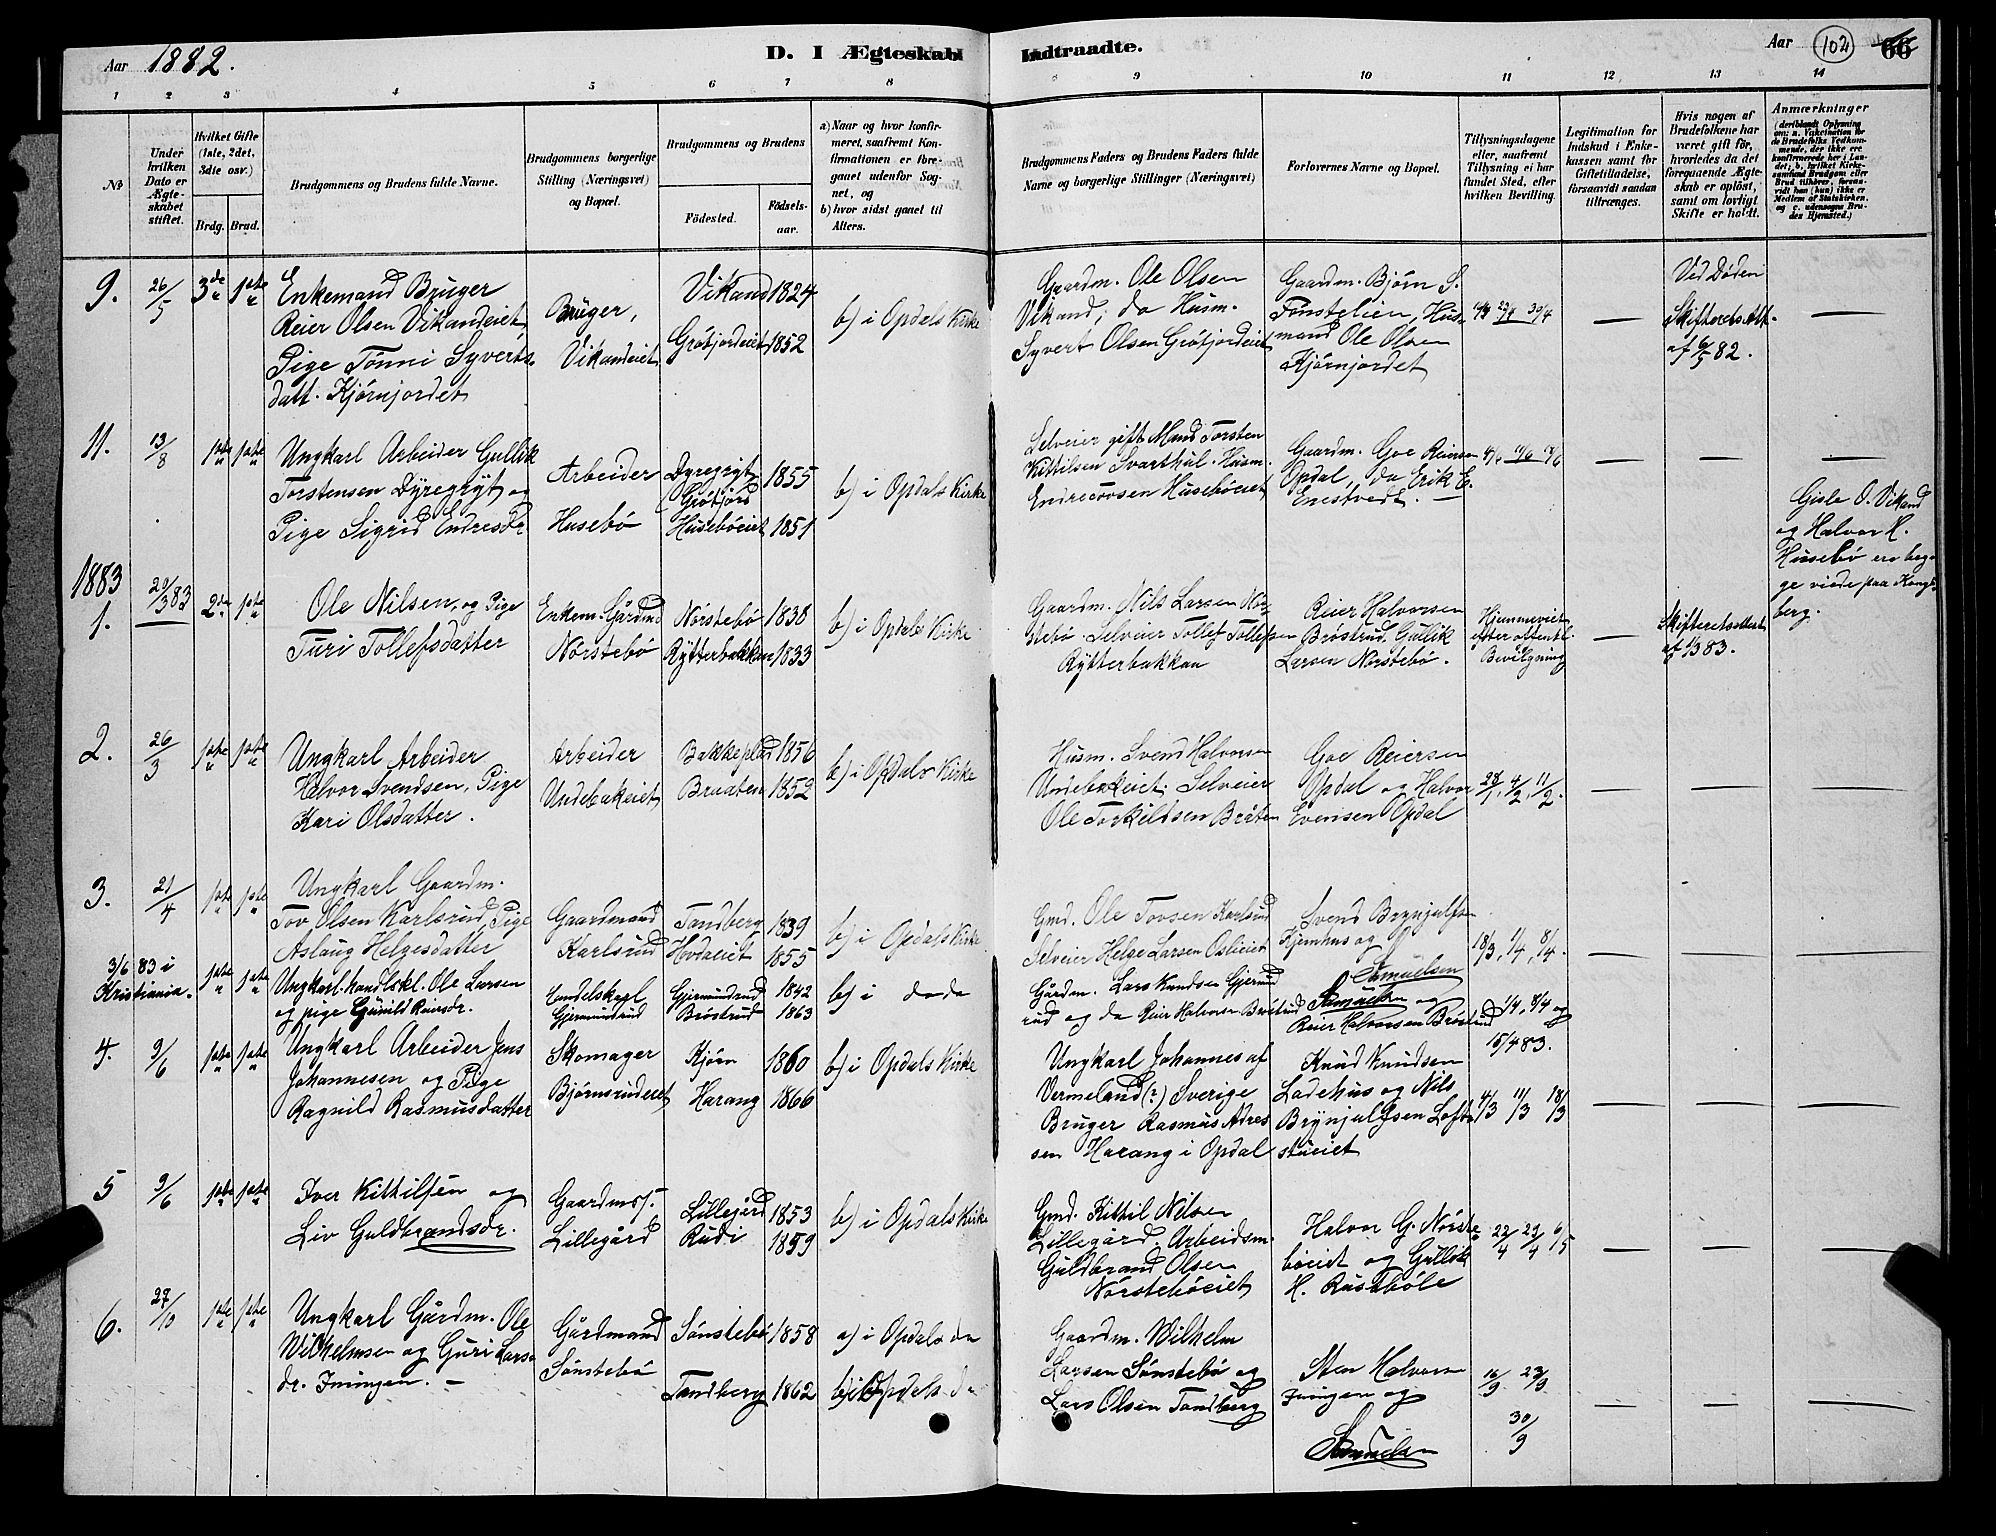 Aar 1882.
D. I Ægteskab Indtraadte.
Aar
102
66
1 2 3 4 5 6 7 8 9 10 11 12 13 14
No
Under hvilken Dato er Ægteskabet stiftet.
Hvilket Gifte (1ste, 2det, 3die osv.)
Brdg. Brud.
Brudgommens og Brudens fulde Navne.
Brudgommens borgerlige Stilling (Næringsvei) og Bopæl.
Brudgommens og Brudens
Fødested.
Fødselsaar.
a) Naar og hvor konfirmeret, saafremt Konfirmationen er foregaaet udenfor Sognet, og
b) hvor sidst gaaet til Alters.
Brudgommens Faders og Brudens Faders fulde Navne og borgerlige Stillinger (Næringsvei)
Forlovernes Navne og Bopæl.
Tillysningsdagene eller, saafremt Tillysning ei har fundet Sted, efter hvilken Bevilling.
Legitimation for Indskud i Enkekassen samt for Giftetilladelse, forsaavidt saadan tiltrænges.
Hvis nogen af Brudefolkene har været gift før, hvorledes da det foregaaende Ægteskab er opløst, samt om lovligt Skifte er holdt.
Anmærkninger (deriblandt Oplysning om: a. Vakcination for de Brudefolks Vedkommende, der ikke ere konfirmerede her i Landet; b. hvilket Kirkesamfund Brudgom eller Brud tilhører, forsaavidt han (hun) ikke er Medlem af Statskirken, og c. udensogns Brudes Hjemsted.)
9. 26/5 3de 1ste
Enkemand Bruger
Reier Olsen Vikandeiet
Pige Tønni Syverts-
datt. Kjørnjordet
Bruger,
Vikandeiet
Vikand 1824
Grøtfjordeiet 1852
b) i Opdals Kirke
Gaardm. Ole Olsen
Vikand; do Husm.
Syvert Olsen Grøtfjordeiet
Gaardm. Bjørn S.
Fønstelien, Hus-
mand Ole Olsen
Kjørnjordet
Ved Døden
Skifterets Att.
af 6/5 82.
11. 13/8 1ste 1ste
Ungkarl Arbeider Gullik
Torstensen Dyregryt og
Pige Sigrid Endresdr
Arbeider
Husebø
Dyregryt 1855
(Grøtfjord
Husebøeiet 1851
b) i Opdals Kirke
Selveier gift Mand Torsten
Kittilsen Svarthul. Husm.
Endre Husebøeiet
Gaardm. Goe Reiersen
Opdal, do Erik E.
Enestvedt.
Gisle O. Vikand
og Halvor H.
Husebø ere beg-
ge viede paa Kongs-
berg.
1883
1. 20/3 83 2den 1ste
Ole Nilsen, og Pige
Turi Tollefsdatter
Enkem. Gårdmd
Nørstebø
Nørstebø 1838
Rytterbakken 1833
b) i Opdals Kirke
Gaardm. Nils Larsen Nør-
stebø. Selveier Tollef Tollefsen
Rytterbakkan
Reier Halvorsen
Brøstrud. Gullik
Larsen Nørstebø.
Hjemmeviet
efter offentl.
Bevilgning
Skifteretsattest
af 1/3 83.
2. 26/3 1ste 1ste
Ungkarl Arbeider
Halvor Svendsen, Pige
Kari Olsdatter.
Arbeider
Undebakeiet
Bakkeplad 1856
Braaten 1852
b) i Opdals Kirke
Husm. Svend Halvorsen
Undebakeiet. Selveier
Ole Torkildsen Bråten
Goe Reiersen
Opdal og Halvor
Evensen Opdal
28/1, 4/2, 11/2.
3. 21/4 1ste 1ste
Ungkarl Gaardm.
Tov Olsen Karlsrud, Pige
Aslaug Helgesdatter
Gaardmand
Karlsrud
Tandberg 1839
Hovdaeiet 1855
b) i Opdals Kirke
Gmd. Ole Tovsen Karlsrud
Selveier Helge Larsen Oslieiet
Svend Brynjulfsen
Kjemhus og
Samuelsen
18/3, 1/4, 8/4.
3/6 83 i
Kristiania. 1ste 1ste
Ungkarl. handlskl. Ole Larsen
og pige Gunild Reiersdr.
Handelskarl
Gjermundrud
Gjermundrud 1842
Brøstrud 1863
b) i dodo
Gårdm. Lars Knudsen Gjermund-
rud og do Reier Halvorsen Brøstrud
Samuelsen og
Reier Halvorsen Brøstrud
1/4, 8/4 og
15/4 83.
4. 9/6 1ste 1ste
Ungkarl Arbeider Jens
Johannesen og Pige
Ragnild Rasmusdatter
Skomager
Bjørnsrudeiet
Kjørn 1860
Harang 1866
b) i Opdals Kirke
Ungkarl Johannes af
Vermeland (?) Sverige
Bruger Rasmus Adres-
sen Harang i Opdal
Knud Knudsen
Ladehus og Nils
Brynjulfsen Loft-
stueiet
4/3 11/3 18/3
5 9/6 1ste 1ste
Iver Kittilsen og
Liv Guldbrandsdr.
Gaardms S.
Lillegård
Lillegård 1853
Rudi 1859
b) i Opdals Kirke
Gmd. Kittil Nilsen
Lillegård. Arbeidsm.
Guldbrand Olsen
Nørstebøeiet
Halvor G. Nørste-
bøeiet og Gullik
H. Rustbøle
22/4 29/4 6/5
6. 27/10 1ste 1ste
Ungkarl Gårdm. Ole
Wilhelmsen og Guri Lars-
dr. Juringen.
Gårdmand
Sønstebø
Sønstebø 1858
Tandberg 1862
a) i Opdals do
b) i Opdals do
Gaardm. Wilhelm
Larsen Sønstebø og
Lars Olsen Tandberg
Sten Halvorsen
Juringen og
Samuelsen
16/9 23/9
30/9